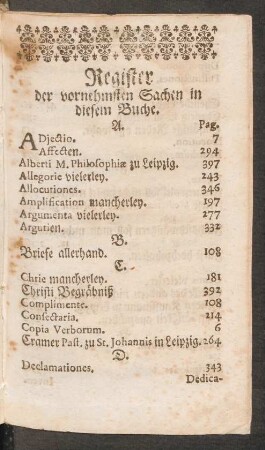 Register
der vornehmsten Sachen in
diesem Buche.
A. Pag.
ADjectio. 7
Affecten. 294
Alberti M. Philosophiæ zu Leipzig. 397
Allegorie vielerley. 243
Allocutiones. 346
Amplification mancherley. 197
Argumenta vielerley. 277
Argutien. 332
B.
Briefe allerhand. 108
C.
Chrie mancherley. 181
Christi Begräbniß 392
Complimente. 108
Consectaria. 214
Copia Verborum. 6
Cramer Past. zu St. Johannis in Leipzig. 264
D.
Declamationes. 343
Dedica-